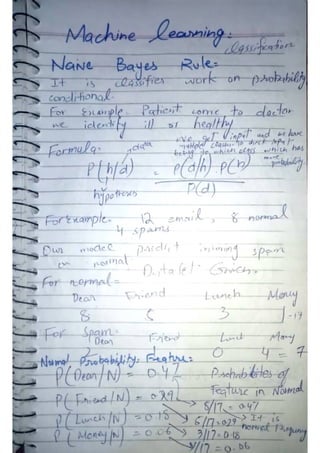 Machine learning:
classification
Naive Bayes Rule:
It is classifies work on probability
conditional.
For Example. Patient come to doctor
we identify ill or healthy
Formula: data
we get input and we have
multiple classes
which has
more probability
P(h/d) = P(d/h) P(h)
P(d)
hypotheses
For Example. 12 email, 8 normal
4 spams
Our model predict incoming spam
or normal
For normal=
Dear Friend Lunch Money
8 5 3 1 = 17
For Spam=
Dear Friend Lunch Money
2 0 4 = 7
Normal Probability: Feature:
P(Dear/N) = 0.47 Probabilities of
Feature in Normal
P(Friend/N) = 0.29 8/17 = 0.47
P(Lunch/N) = 0.18 5/17 = 0.29 It is
normal Frequency
P(Money/N) = 0.06 3/17 = 0.18
1/17 = 0.06